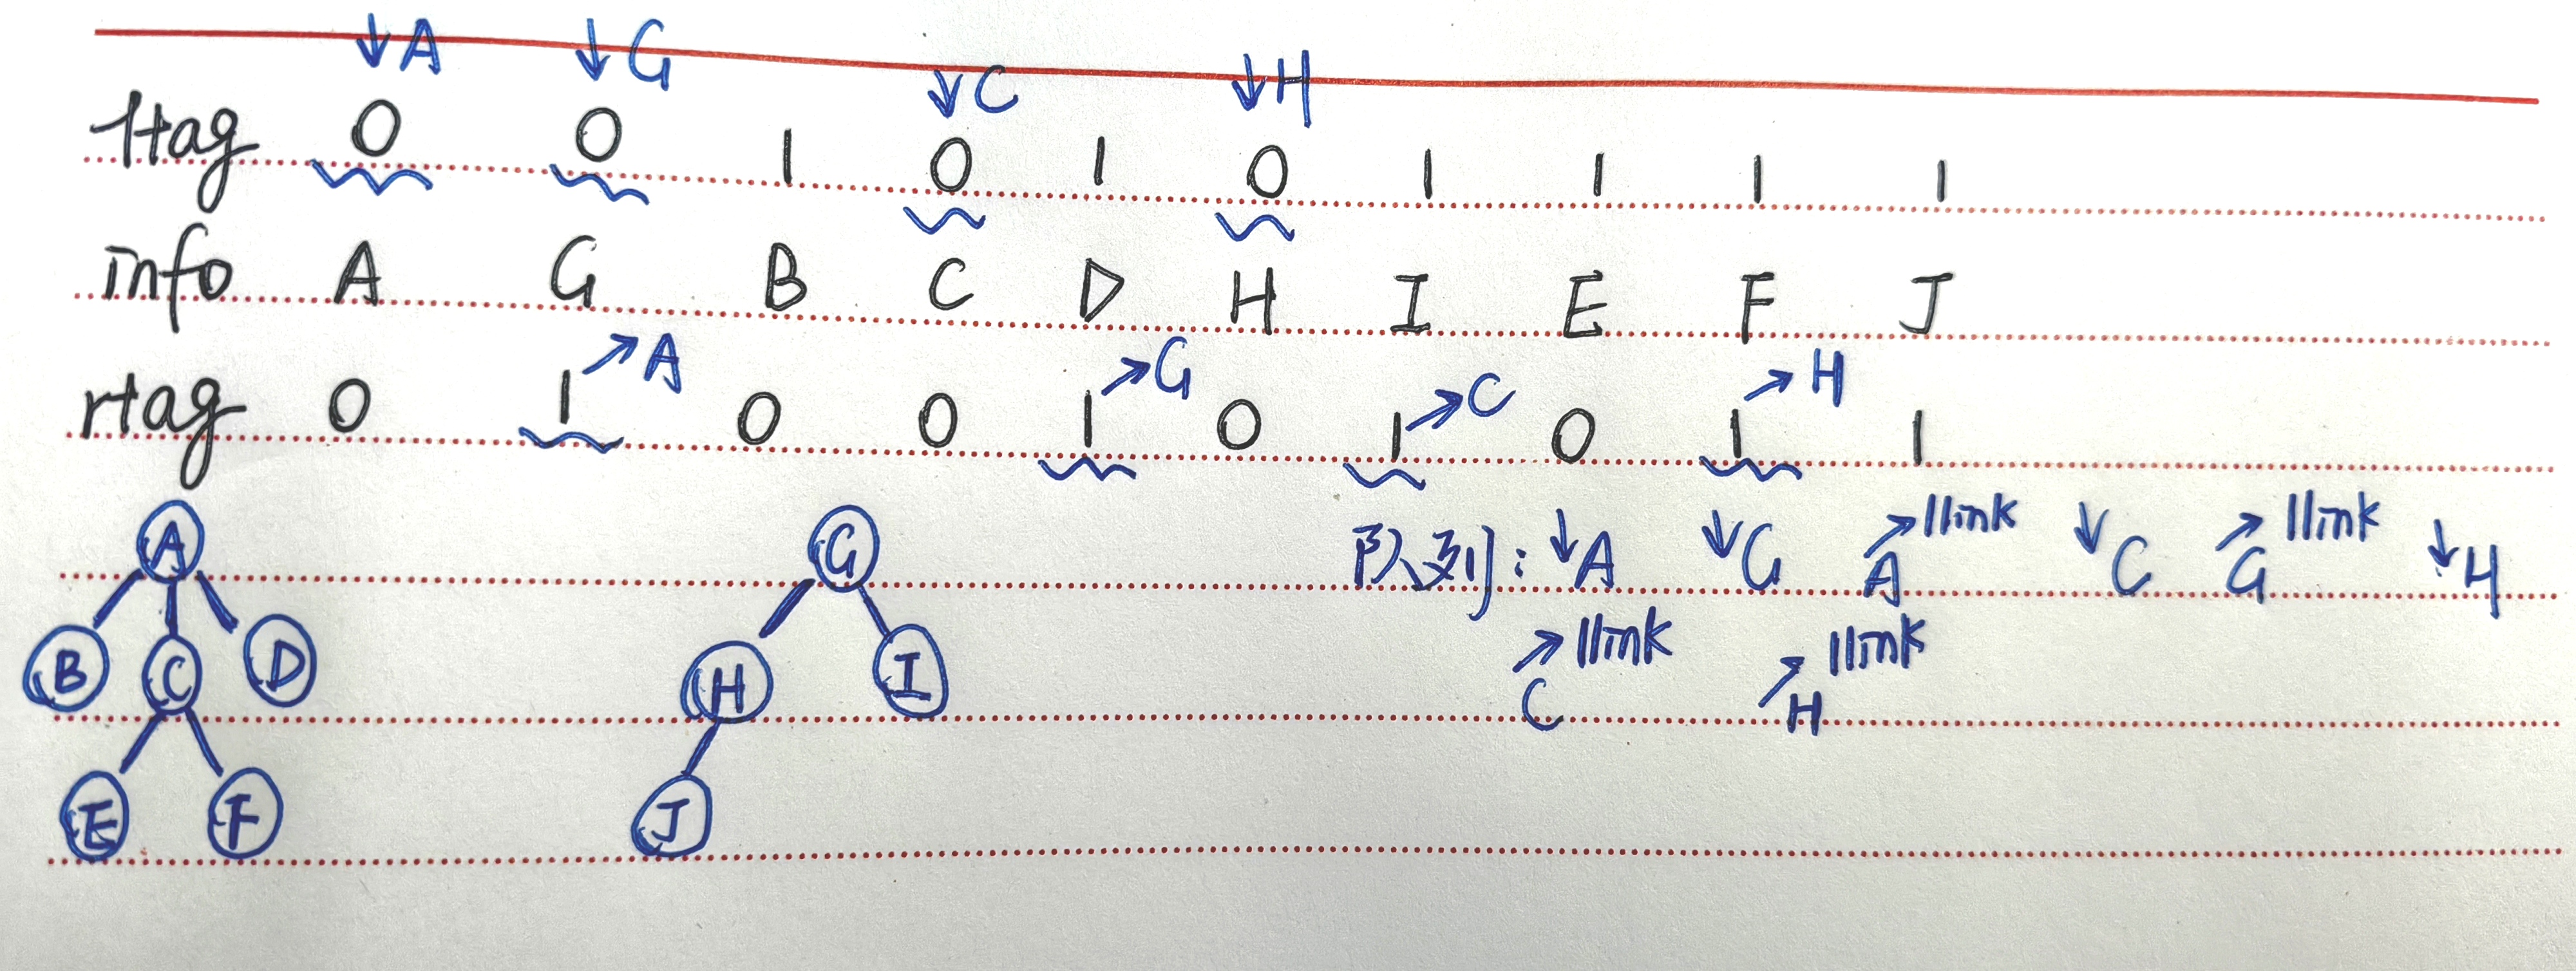 ↓A ↓G ↓C ↓H
ltag 0 0 1 0 1 0 1 1 1 1
info A G B C D H I E F J
↗A ↗G ↗C ↗H
rtag 0 1 0 0 1 0 1 0 1 1
A G 队列: ↓A ↓G ↗A llink ↓C ↗G llink ↓H
B C D H I ↗C llink ↗H llink
E F J